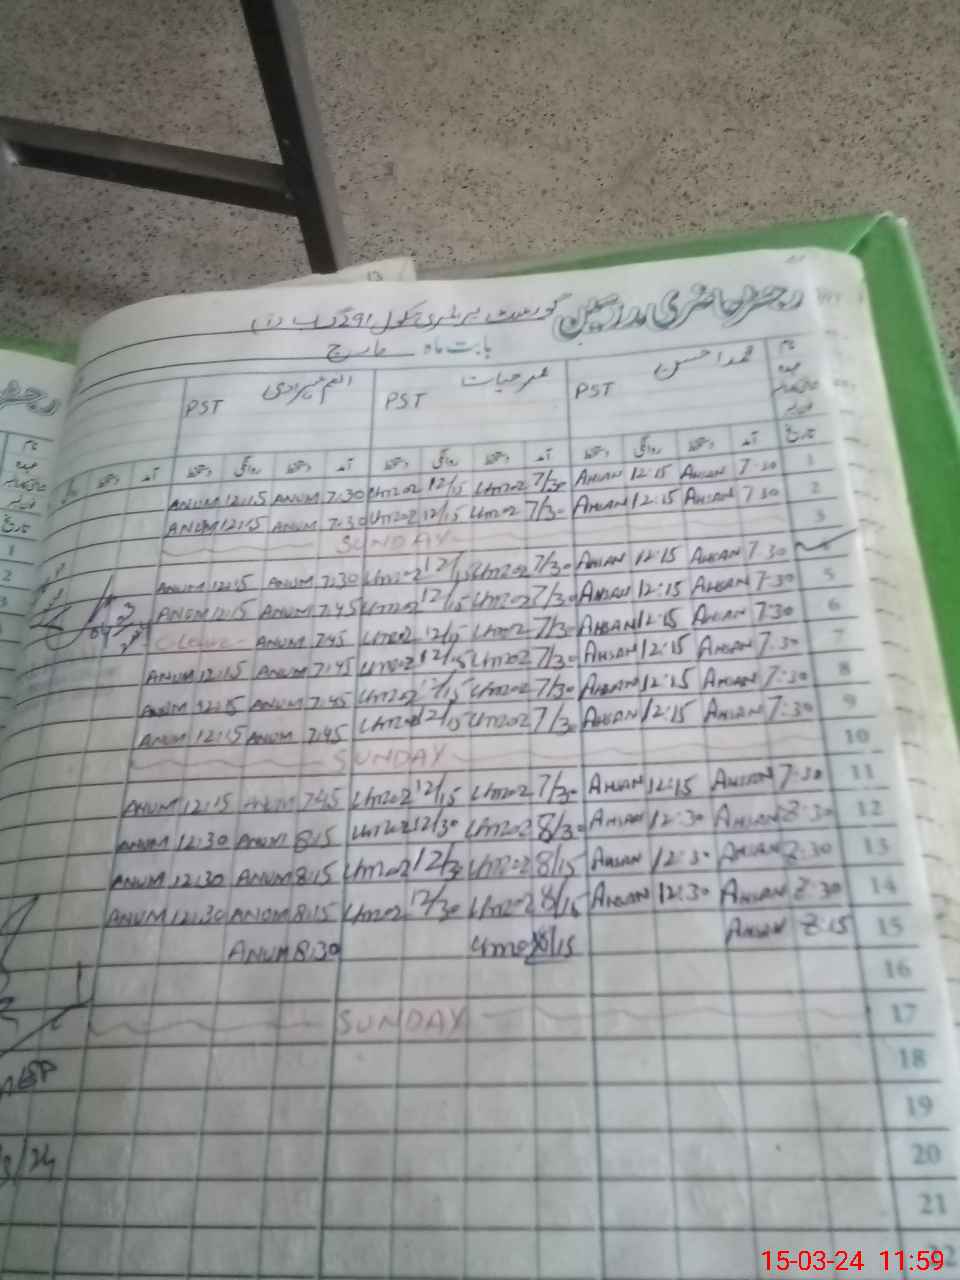 رجسٹر حاضری مدرسین گورنمنٹ پرائمری سکول
بابت ماہ مارچ
نام محمد احسن PST عمر حیات PST PST
عہدہ
تاریخ آمد دستخط روانگی دستخط آمد دستخط روانگی دستخط آمد دستخط روانگی دستخط آمد دستخط
ANUM 12:15 ANUM 7:30 Umar 12/15 Umar 7/30 AHSAN 12:15 AHSAN 7:30 1
ANUM 12:15 ANUM 7:30 Umar 12/15 Umar 7/30 AHSAN 12:15 AHSAN 7:30 2
SUNDAY 3
ANUM 12:15 ANUM 7:30 Umar 12/15 Umar 7/30 AHSAN 12:15 AHSAN 7:30 4
ANUM 12:15 ANUM 7:45 Umar 12/15 Umar 7/30 AHSAN 12:15 AHSAN 7:30 5
ANUM 7:45 Umar 12/15 Umar 7/30 AHSAN 12:15 AHSAN 7:30 6
ANUM 12:15 ANUM 7:45 Umar 12/15 Umar 7/30 AHSAN 12:15 AHSAN 7:30 7
ANUM 12:15 ANUM 7:45 Umar 12/15 Umar 7/30 AHSAN 12:15 AHSAN 7:30 8
ANUM 12:15 ANUM 7:45 Umar 12/15 Umar 7/30 AHSAN 12:15 AHSAN 7:30 9
SUNDAY 10
ANUM 12:15 ANUM 7:45 Umar 12/15 Umar 7/30 AHSAN 12:15 AHSAN 7:30 11
ANUM 12:30 ANUM 8:15 Umar 12/30 Umar 8/30 AHSAN 12:30 AHSAN 8:30 12
ANUM 12:30 ANUM 8:15 Umar 12/30 Umar 8/15 AHSAN 12:30 AHSAN 8:30 13
ANUM 12:30 ANUM 8:15 Umar 12/30 Umar 8/15 AHSAN 12:30 AHSAN 8:30 14
ANUM 8:30 Umar 8/15 AHSAN 8:15 15
16
SUNDAY 17
18
19
20
21
22
15-03-24 11:59